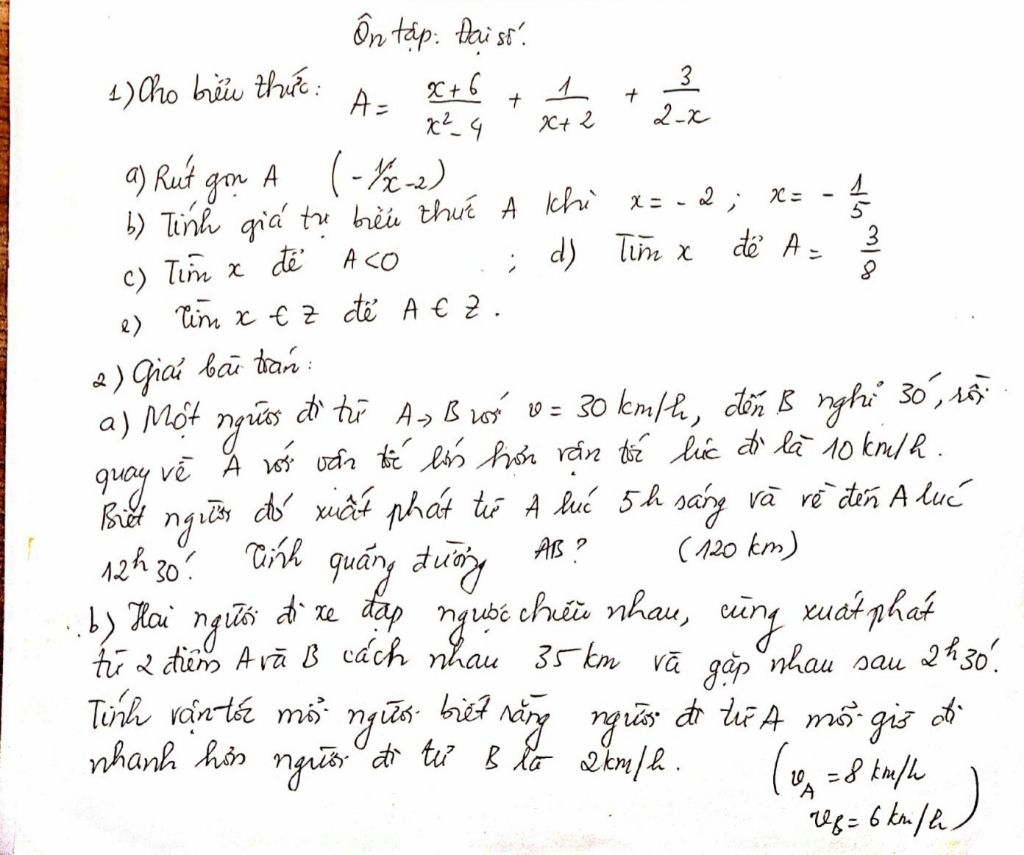 Ôn tập: Đại số.
1) Cho biểu thức: A = \frac{x+6}{x²-4} + \frac{1}{x+2} + \frac{3}{2-x}
a) Rút gọn A (-1/x-2)
b) Tính giá trị biểu thức A khi x = -2; x = -\frac{1}{5}
c) Tìm x để A<0 ; d) Tìm x để A = \frac{3}{8}
e) Tìm x ∈ Z để A ∈ Z.
2) Giải bài toán:
a) Một người đi từ A→B với v = 30 km/h, đến B nghỉ 30', rồi
quay về A với vận tốc lớn hơn vận tốc lúc đi là 10 km/h.
Biết người đó xuất phát từ A lúc 5h sáng và về đến A lúc
12h30'. Tính quãng đường AB? (120 km)
b) Hai người đi xe đạp ngược chiều nhau, cùng xuất phát
từ 2 điểm A và B cách nhau 35 km và gặp nhau sau 2h30'.
Tính vận tốc mỗi người biết rằng người đi từ A mỗi giờ đi
nhanh hơn người đi từ B là 2km/h. (v_A = 8 km/h
v_B = 6 km/h)